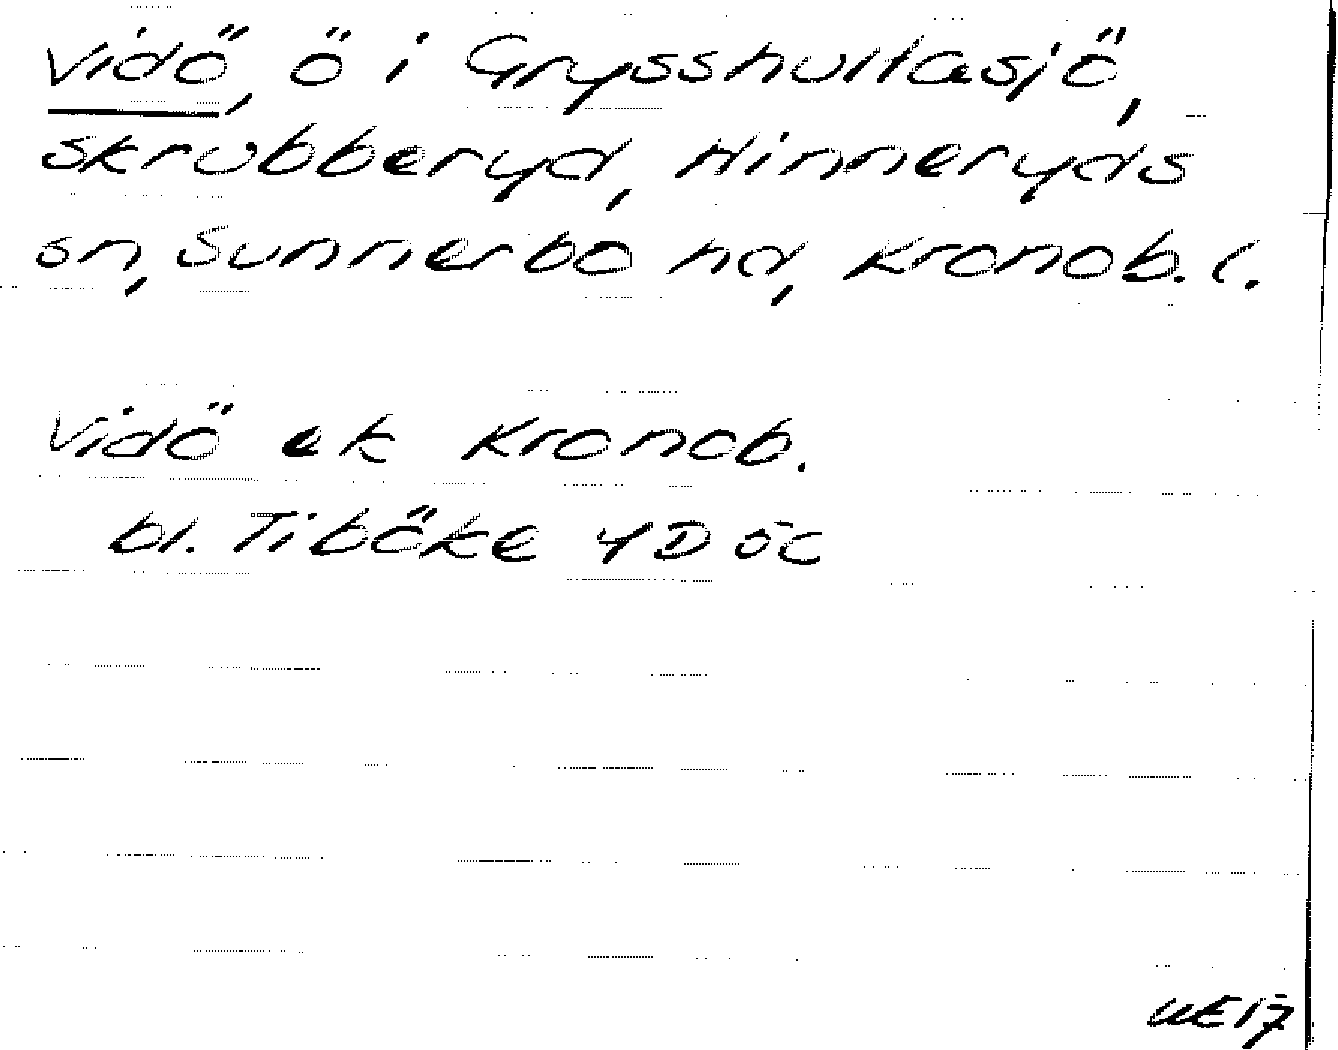 Vidö, ö i Grysshultasjö,
Skrubberyd, Hinneryds
sn, Sunnerbo hd, Kronob. l.
Vidö ek Kronob.
bl. Tiböke 4D 5c